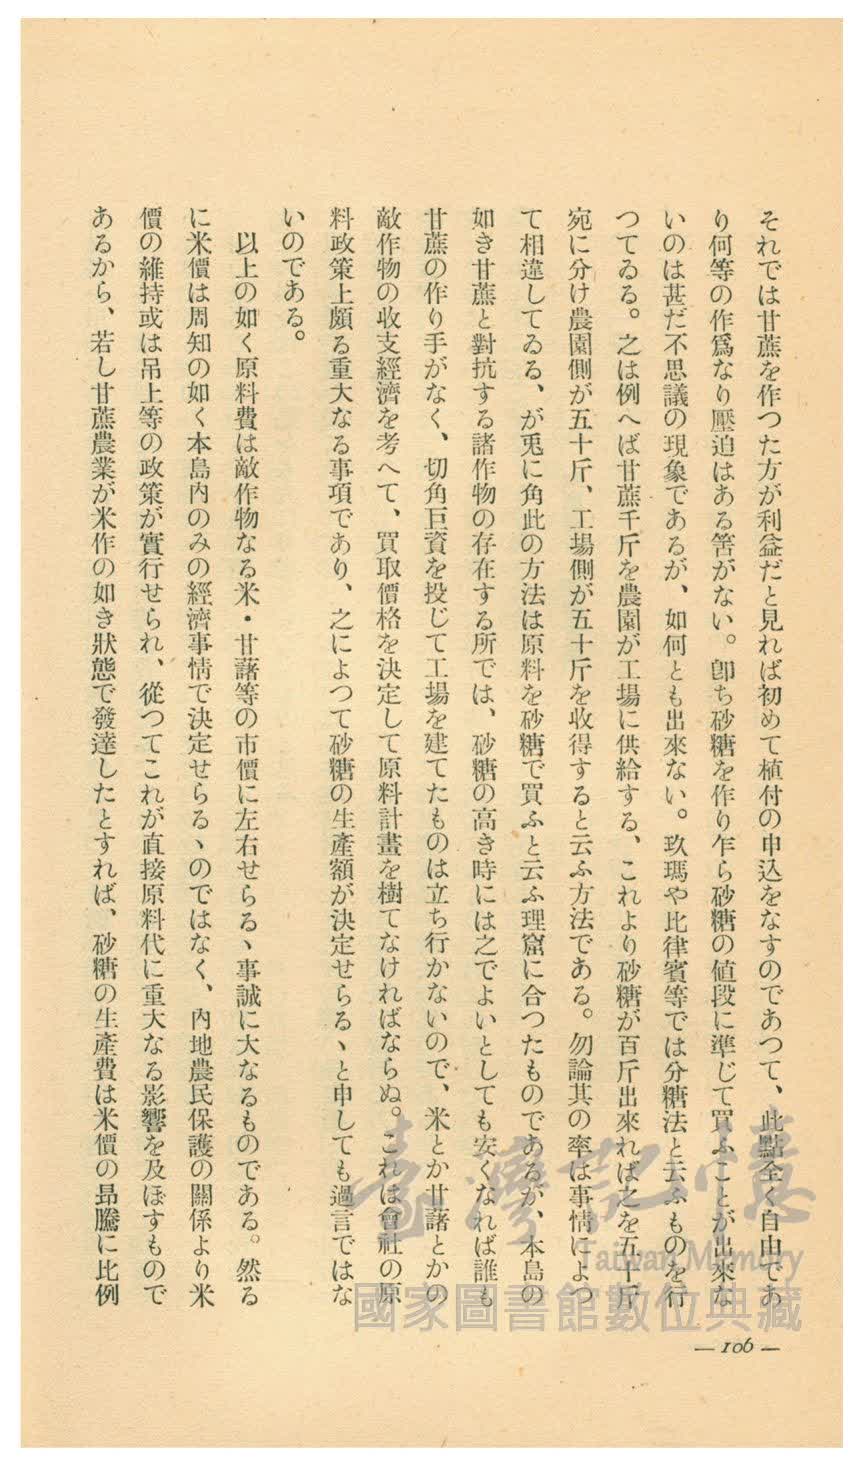 それでは甘蔗を作つた方が利益だと見れば初めて植付の申込をなすのであつて、此點全く自由であ
り何等の作爲なり壓迫はある筈がない。卽ち砂糖を作り乍ら砂糖の値段に準じて買ふことが出來な
いのは甚だ不思議の現象であるが、如何とも出來ない。玖瑪や比律賓等では分糖法と云ふものを行
つてゐる。之は例へば甘蔗千斤を農園が工場に供給する、これより砂糖が百斤出來れば之を五十斤
宛に分け農園側が五十斤、工場側が五十斤を收得すると云ふ方法である。勿論其の率は事情によつ
て相違してゐる、が兎に角此の方法は原料を砂糖で買ふと云ふ理窟に合つたものであるが、本島の
如き甘蔗と對抗する諸作物の存在する所では、砂糖の高き時には之でよいとしても安くなれば誰も
甘蔗の作り手がなく、切角巨資を投じて工場を建てたものは立ち行かないので、米とか甘藷とかの
敵作物の收支經濟を考へて、買取價格を決定して原料計畫を樹てなければならぬ。これは會社の原
料政策上頗る重大なる事項であり、之によつて砂糖の生產額が決定せらるヽと申しても過言ではな
いのである。
以上の如く原料費は敵作物なる米・甘藷等の市價に左右せらるヽ事誠に大なるものである。然る
に米價は周知の如く本島内のみの經濟事情で決定せらるヽのではなく、内地農民保護の關係より米
價の維持或は吊上等の政策が實行せられ、從つてこれが直接原料代に重大なる影響を及ぼすもので
あるから、若し甘蔗農業が米作の如き狀態で發達したとすれば、砂糖の生產費は米價の昻騰に比例
— 106 —
臺灣記憶
Taiwan Memory
國家圖書館數位典藏